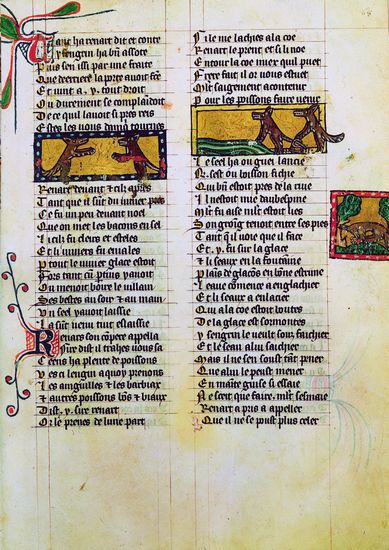 Tant ha renart dit et conte
Puis sen issi par une fraite
Que deerriere la pree auoit fet
Et vint a . y . tout droit
Ou durement se complaingnoit
De ce quil lauoit si pres
Renart deuant & cil apres
Tant que il sut du
Ce fu un peu deuant noel
Que on met les bacons en sel
Li cils fu clers et esteles
Et li viuiers fu engeles
tout le viuier glace estoit
Fors tant un pertuis yauoit
On menoit boire le uillain
Ses bestes au soir & au main
Vn seel yauoit laissie
Renars son copere appella
Sire dist il trahes uous sa
Ceens ha plente de poissons
Ves ci lengin a quoy prenons
Les anguilles & les barbiax
& autres poissons bons & biaux
Dist . y . sire renart
Or le prenes de lune part
Si le me laches a la coe
Renart le prent et si li noe
Entour la coe miex quil puet
Frere fait il or uous estuet
Mlt saigement a contenir
Pour les poissons faire venir
Le seel ha ou guei lancie
R. sest ou buisson fichie
Qui bien estoit pres de la riue
Il estoit mie daubespine
Son groing tenoit entre ses pies
Tant quil uoie que il face
Et . y . fu sur la glace
Et li seaux en la fontaine
Plains de glacons en bone estrine
Leaue comence a englachier
Et li seaux a enlacier
Qui a la coe estoit
De la glace est sormontes
ysengrin le veult souz saichier
Et le seau a lui saichier
Mais il ne sen
Que a lui le peust mener
En mainte guise si essaie
Ne scet que faire . mlt sesmaie
Renart a pris a appeller
Que il ne se puet plus celer